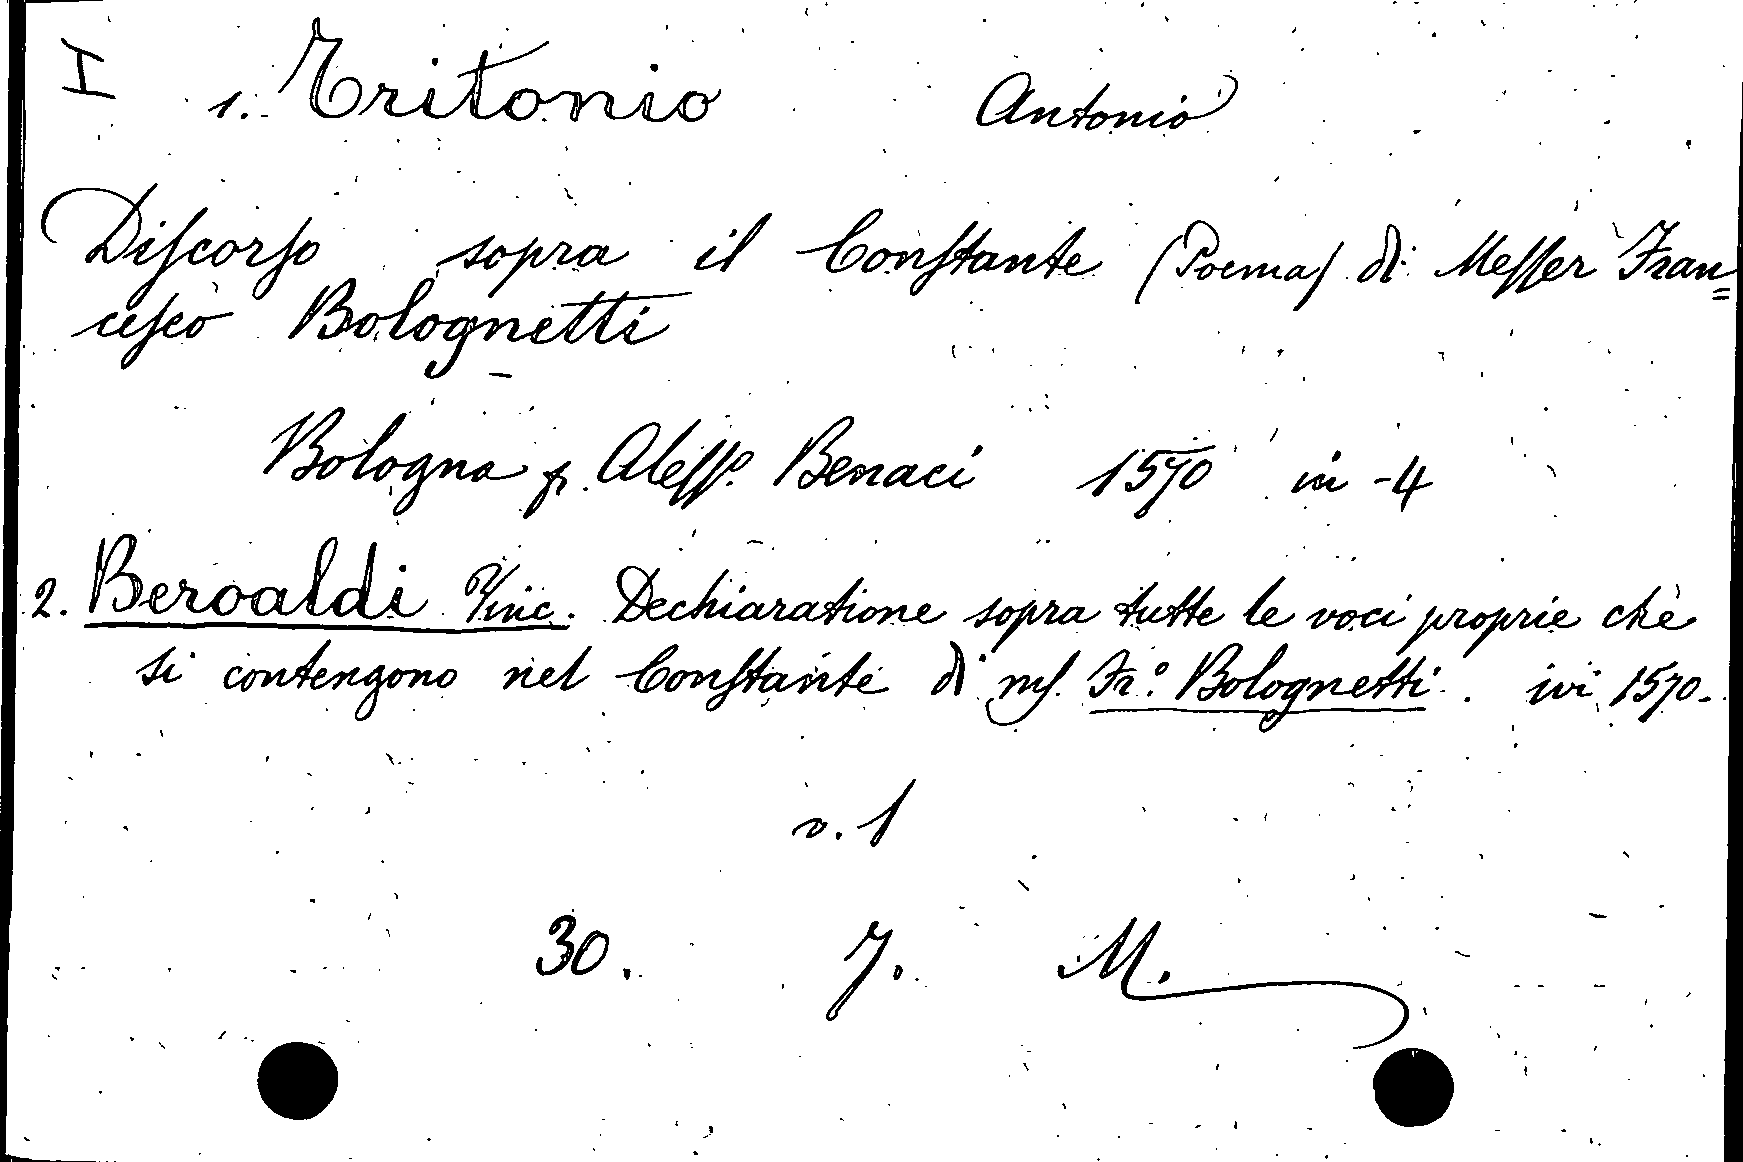 I 1. Tritonio Antonio
Diſcorſo sopra il Conſtante (Poema) di Meſſer Fran=
ceſco Bolognetti
Bologna p. Aleſſo. Benaci 1570 in -4
2. Beroaldi Vinc. Dechiaratione sopra tutte le voci proprie che
si contengono nel Conſtante di mſ. Fr.º Bolognetti. ivi 1570.
v. 1
30. 7. M.